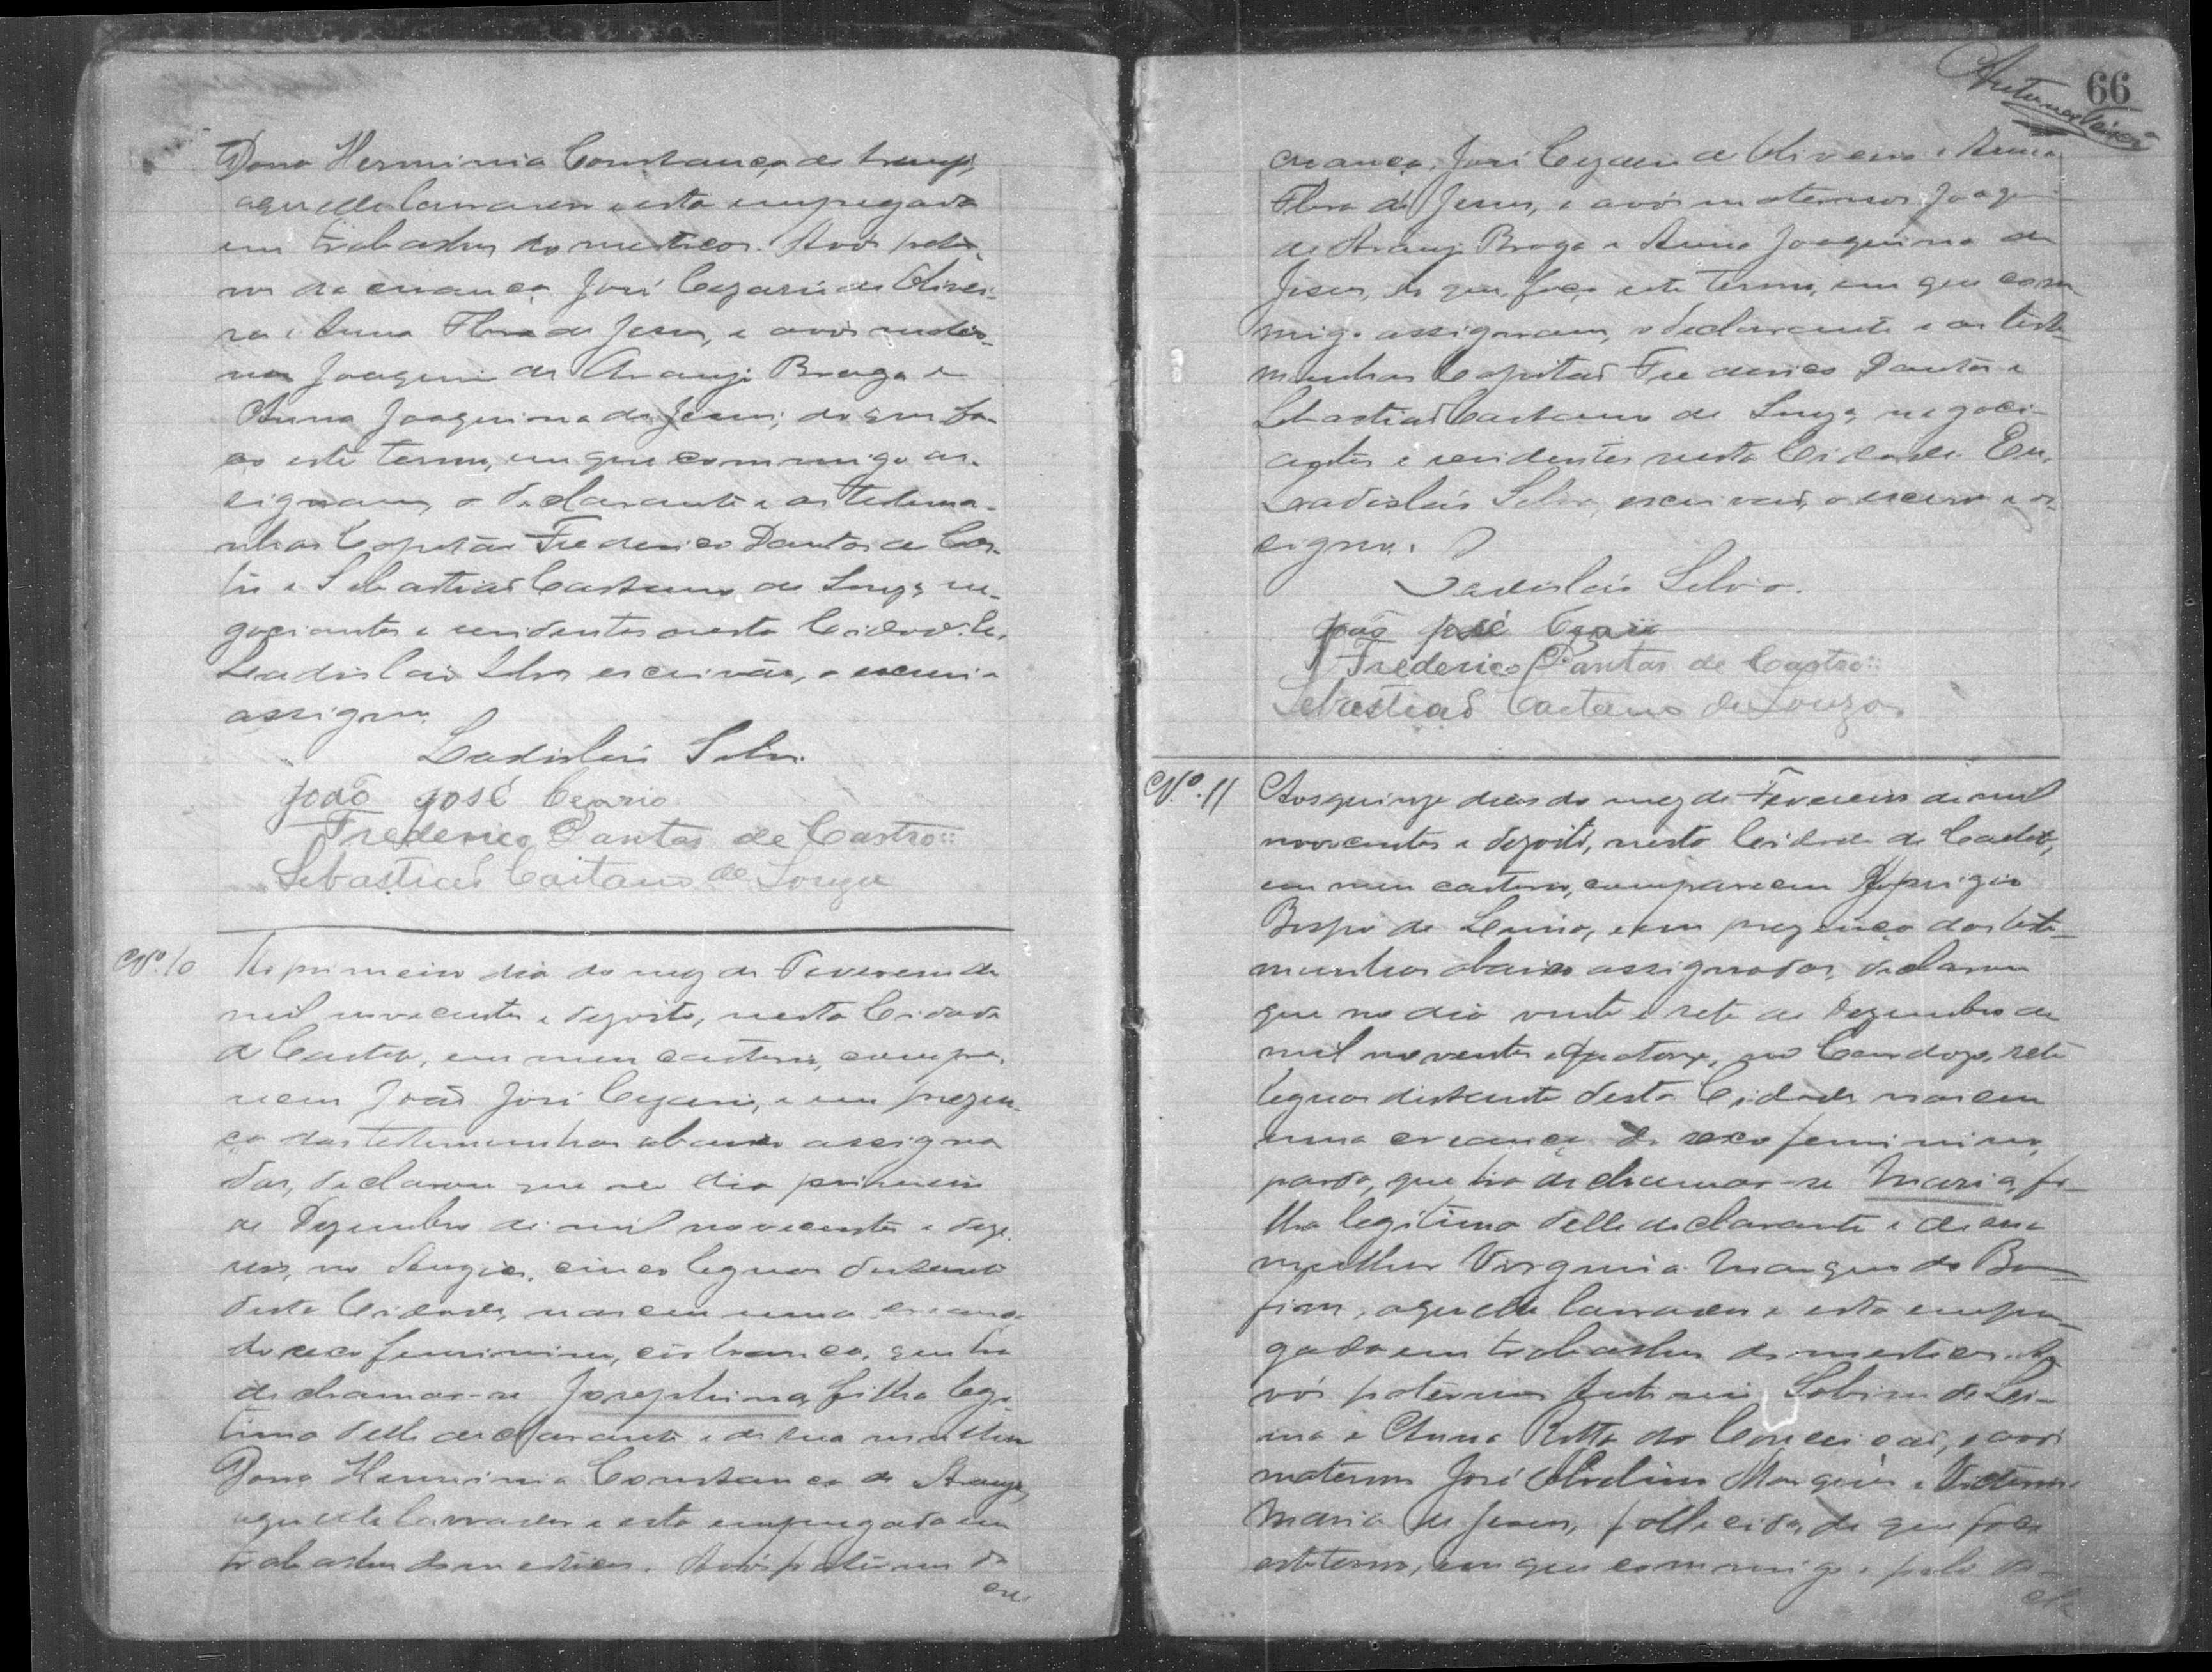 Dona Herminia Constança de Araujo,
aquelle lavrador e esta empregada
em trabalhos domesticos. Avós pater-
nos da creança José Cezario de Olivei-
ra e Anna Flora de Jesus, e avós mater-
nos Joaquim de Araujo Braga e
Anna Joaquina de Jesus; do que fa-
ço este termo, em que commigo as-
signam, o declarante e as testemu-
nhas Capitão Frederico Dantas de Cas-
tro e Sebastião Caetano de Souza, ne-
gociantes e residentes nesta Cidade. Eu,
Ladislau Silva escrivão, o escrevi e
assigno.
Ladislau Silva.
João José Cezario
Frederico Dantas de Castro
Sebastião Caitano de Souza
Nº. 10
Ao primeiro dia do mez de Fevereiro de
mil novecentos e dezoito, nesta Cidade
de Caeteté, em meu cartorio, compa-
receu João José Cezario, e em prezen-
ça das testemunhas abaixo assigna
das, declarou que no dia primeiro
de Dezembro de mil novecentos e deze-
seis, no cinco leguas distante
desta Cidade, nasceu uma creança
do sexo feminino, côr branca, que ha
de chamar-se Josephina, filha legi-
tima delle declarante e de sua mulher
Dona Herminia Constança de Araujo,
aquelle lavrador e esta empregada em
trabalhos domesticos. Avós paternos da
cre
66
creança, José Cezario de Oliveira e Anna
Flora de Jesus, e avós maternos Joaquim
de Araujo Braga e Anna Joaquina de
Jesus, do que faço este termo, em que com-
migo assignam, o declarante e as teste-
munhas Capitão Frederico Dantas e
Sebastião Caetano de Souza, negoci-
antes e residentes nesta Cidade. Eu,
Ladislau Silva, escrivão, o escrevi e as-
signo.
Ladislau Silva.
João José Cezario
Frederico Dantas de Castro
Sebastião Caetano de Souza
Nº. 11
Aos quinze dias do mez de Fevereiro de mil
novecentos e dezoito, nesta Cidade de Caeteté,
em meu cartorio, compareceu
Bispo de e em prezença das teste-
munhas abaixo assignadas, declarou
que no dia vinte e sete de Dezembro de
mil novecentos e quatorze, no sete
leguas distante desta Cidade nasceu
uma creança do sexo feminino,
parda, que ha de chamar-se Maria, fi-
lha legitima delle declarante e de sua
mulher Virginia Marques do Bom-
fim, aquelle lavrador e esta empre-
gada em trabalhos domesticos. A-
vós paternos de
e Anna Ritta da Conceição, e avós
maternos José Marques e
Maria de Jesus, fallecida, do que faço
este termo, em que commigo e pelo de-
cla